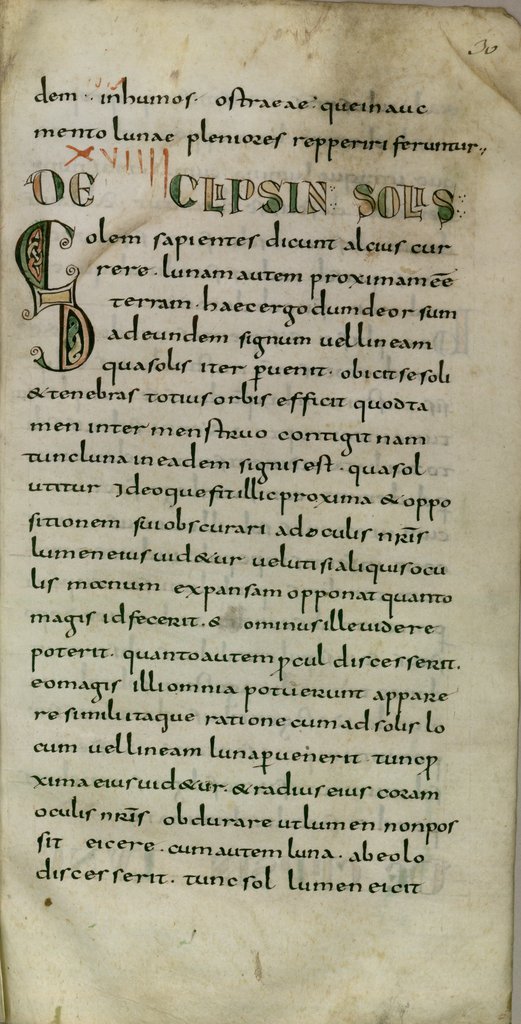 30
dem · inhumos · ostraeae · queinauc
mento lunae pleniores repperiri feruntur·,
XVIIII
DE ECLIPSIN SOLIS
Solem sapientes dicunt alcius cur
rere · lunam autem proximam eē
terram · haec ergo dum deorsum
ad eundem signum vel lineam
qua solis iter p̱uenit · obicit se soli
& tenebras totius orbis efficit quod ta
men inter menstruo contigit nam
tunc luna in eadem signis est · qua sol
utitur Ideoque fit illic proxima & oppo
sitionem sui obscurari ad oculis nr̄is
lumen eius uid&ur uelut si aliquis ocu
lis manum expansam opponat quanto
magis id fecerit · & ominus ille uidere
poterit · quanto autem p̱cul discesserit ·
eo magis illi omnia potuerunt appare
re simili itaque ratione cum ad solis lo
cum uel lineam luna p̱uenerit tunc p̱
xima eius uid&ur · & radius eius coram
oculis nr̄is obdurare ut lumen non pos
sit eicere · cum autem luna · ab eo lo
discesserit · tunc sol lumen eicit